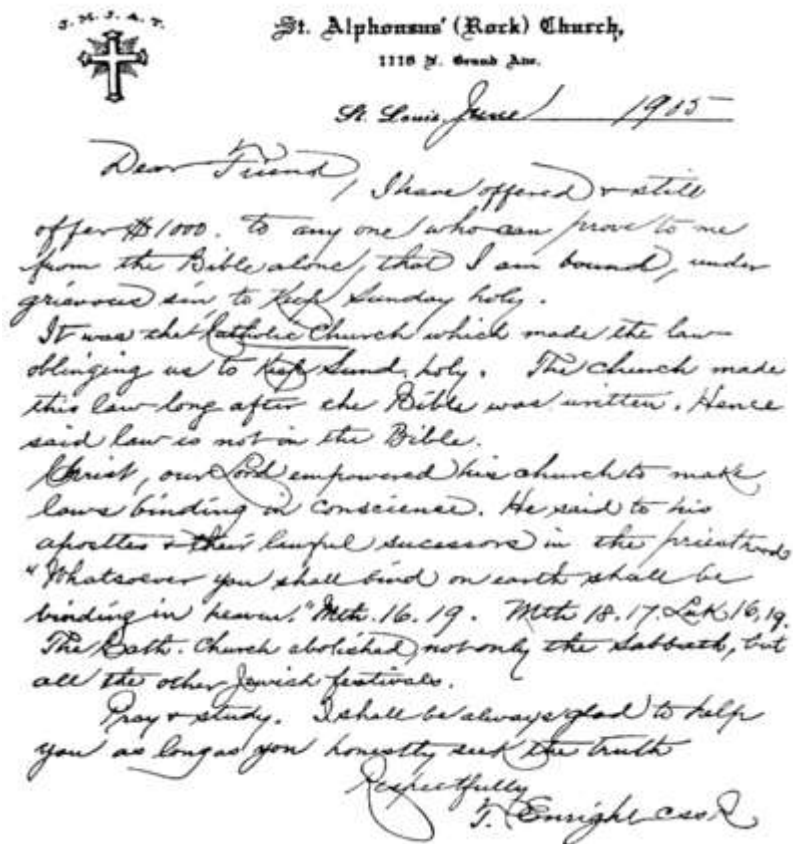 J. M. J. A. T.
St. Alphonsus' (Rock) Church,
1118 N. Grand Ave.
St. Louis, June 1905
Dear Friend,
I have offered & still
offer $1000. to any one who can prove to me
from the Bible alone, that I am bound, under
grievous sin, to keep Sunday holy.
It was the Catholic Church which made the law
oblinging us to keep Sund. holy. The church made
this law long after the Bible was written. Hence
said law is not in the Bible.
Christ, our Lord empowered his church to make
laws binding in consciense. He said to his
apostles & their lawful sucessors in the priesthood
"Whatsoever you shall bind on earth shall be
binding in heaven." Mth. 16. 19. Mth 18. 17. Luk 16, 19.
The Cath. Church abolished not only the Sabbath, but
all the other Jewish festivals.
Pray & study. I shall be always glad to help
you as long as you honestly seek the truth
Respectfully
T. Enright CSSR